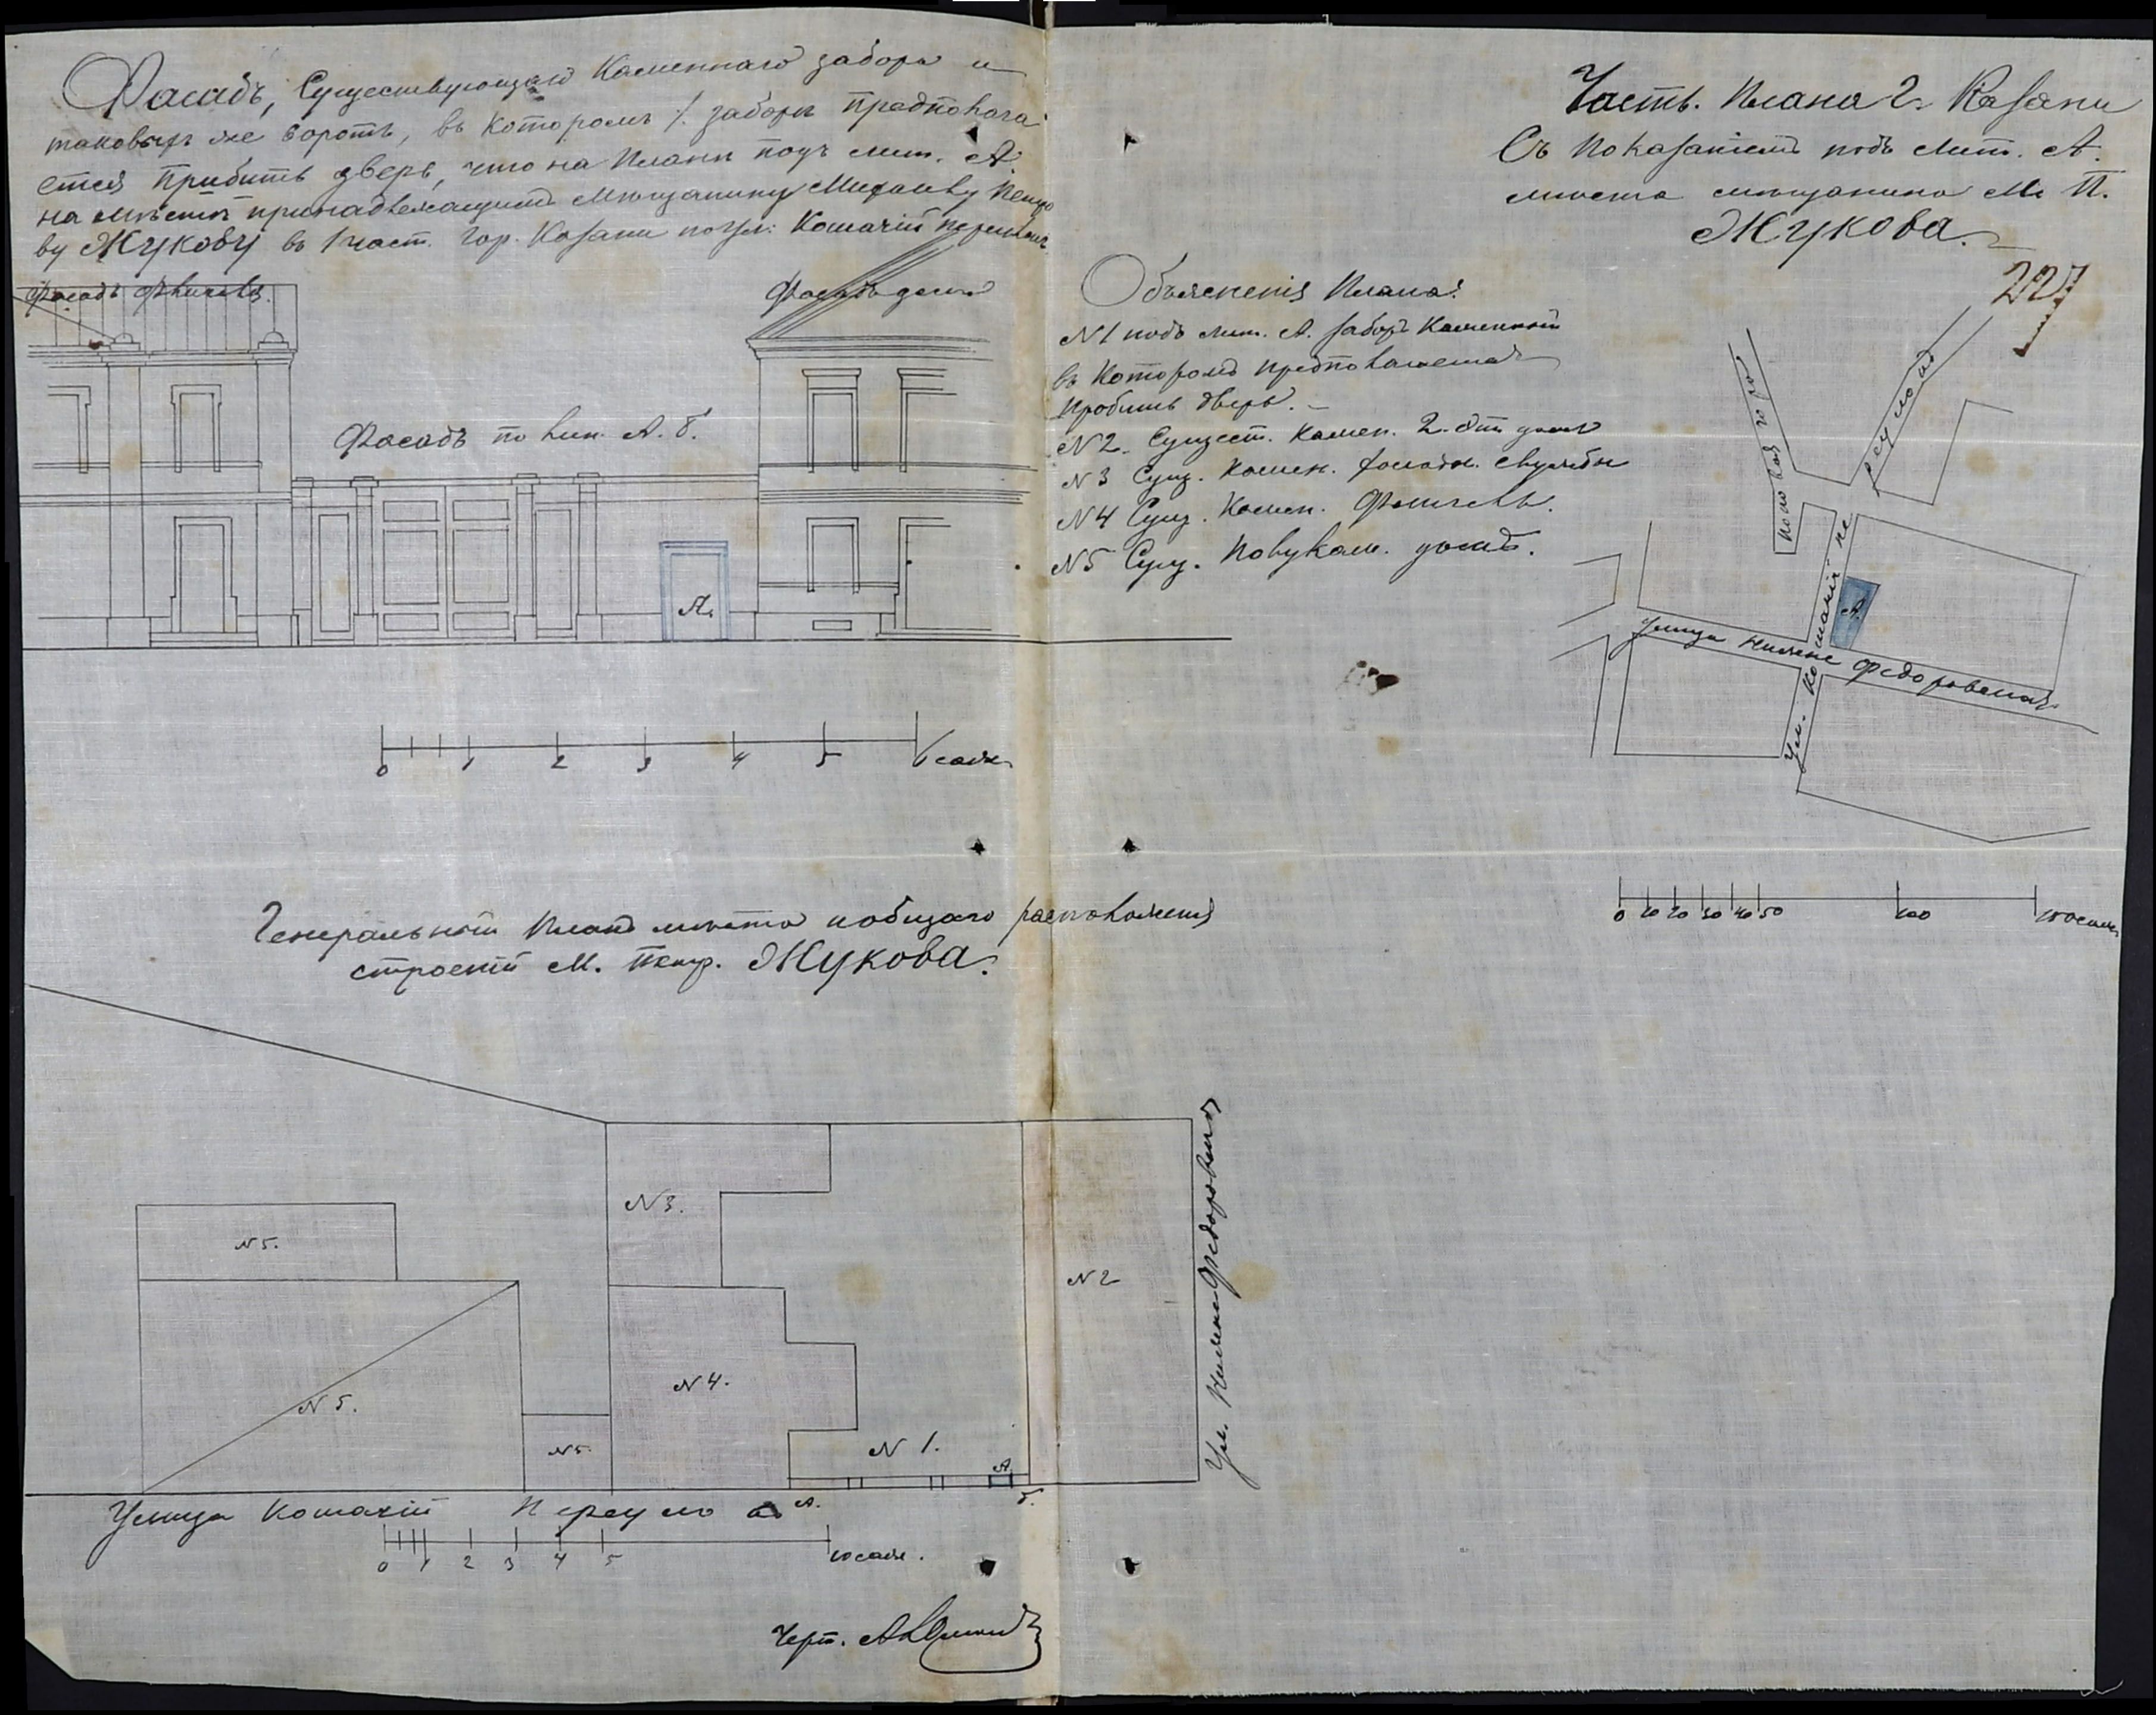 Фасадъ, Существующаго Каменнаго забора и
таковыхъ же воротъ, въ которомъ /. заборѣ предпола
ется прибить дверь, что на Планѣ подъ лит. А.
на мѣстѣ принадлежащимъ Мѣщанину Михаилу Петро
ву Жукову въ 1 част. гор. Казани по ул: Кошачій переулокъ
Фасадъ Флигеля.
Фасадъ дома
Фасадъ по лин. А. б.
А.
0 1 2 3 4 5 6 саж.
Часть. Плана г. Казани
Съ Показаніемъ подъ Лит. А.
мѣста мѣщанина М. П.
Жукова.
227
Объясненія Плана:
N1 подъ лит. А. заборъ Каменный
въ Которомъ предполагается
пробить дверь.
N2. Сущест. камен. 2-эт. домъ
N3 Сущ. камен. службы
N4 Сущ. Камен. Флигель.
N5 Сущ. Полукам. домъ.
А.
улица Нижне Федоровская
Ул. Кошачій пе
реулокъ
0 10 20 30 40 50 100 150 саж.
Генеральный Планъ мѣста и общаго расположенія
строеній М. Петр. Жукова.
N3.
N5.
N2
N4.
N5.
N5.
N1.
А
Ул. Нижне Федоровская
а. б.
Улица Кошачій Переулокъ
0 1 2 3 4 5 10 саж.
Черт.